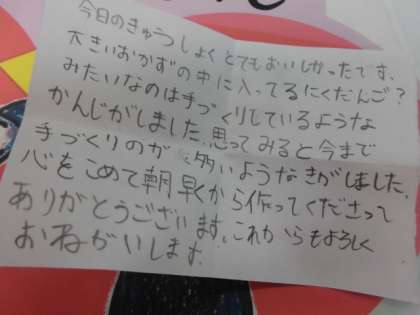 今日のきゅうしょくとてもおいしかったです、
大きいおかずの中に入ってるにくだんご?
みたいなのは手づくりしているような
かんじがしました。思ってみると今まで
手づくりのが多いようなきがしました。
心をこめて朝早くから作ってくださって
ありがとうございます。これからもよろしく
おねがいします。